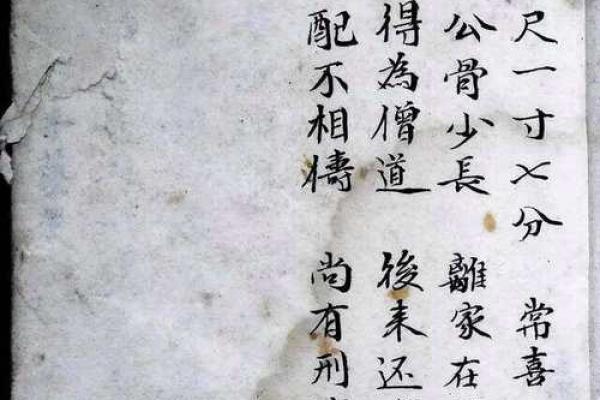 尺一寸七分 常喜
公骨少長 離家在
得為僧道 後来还
配不相儔 尚有刑